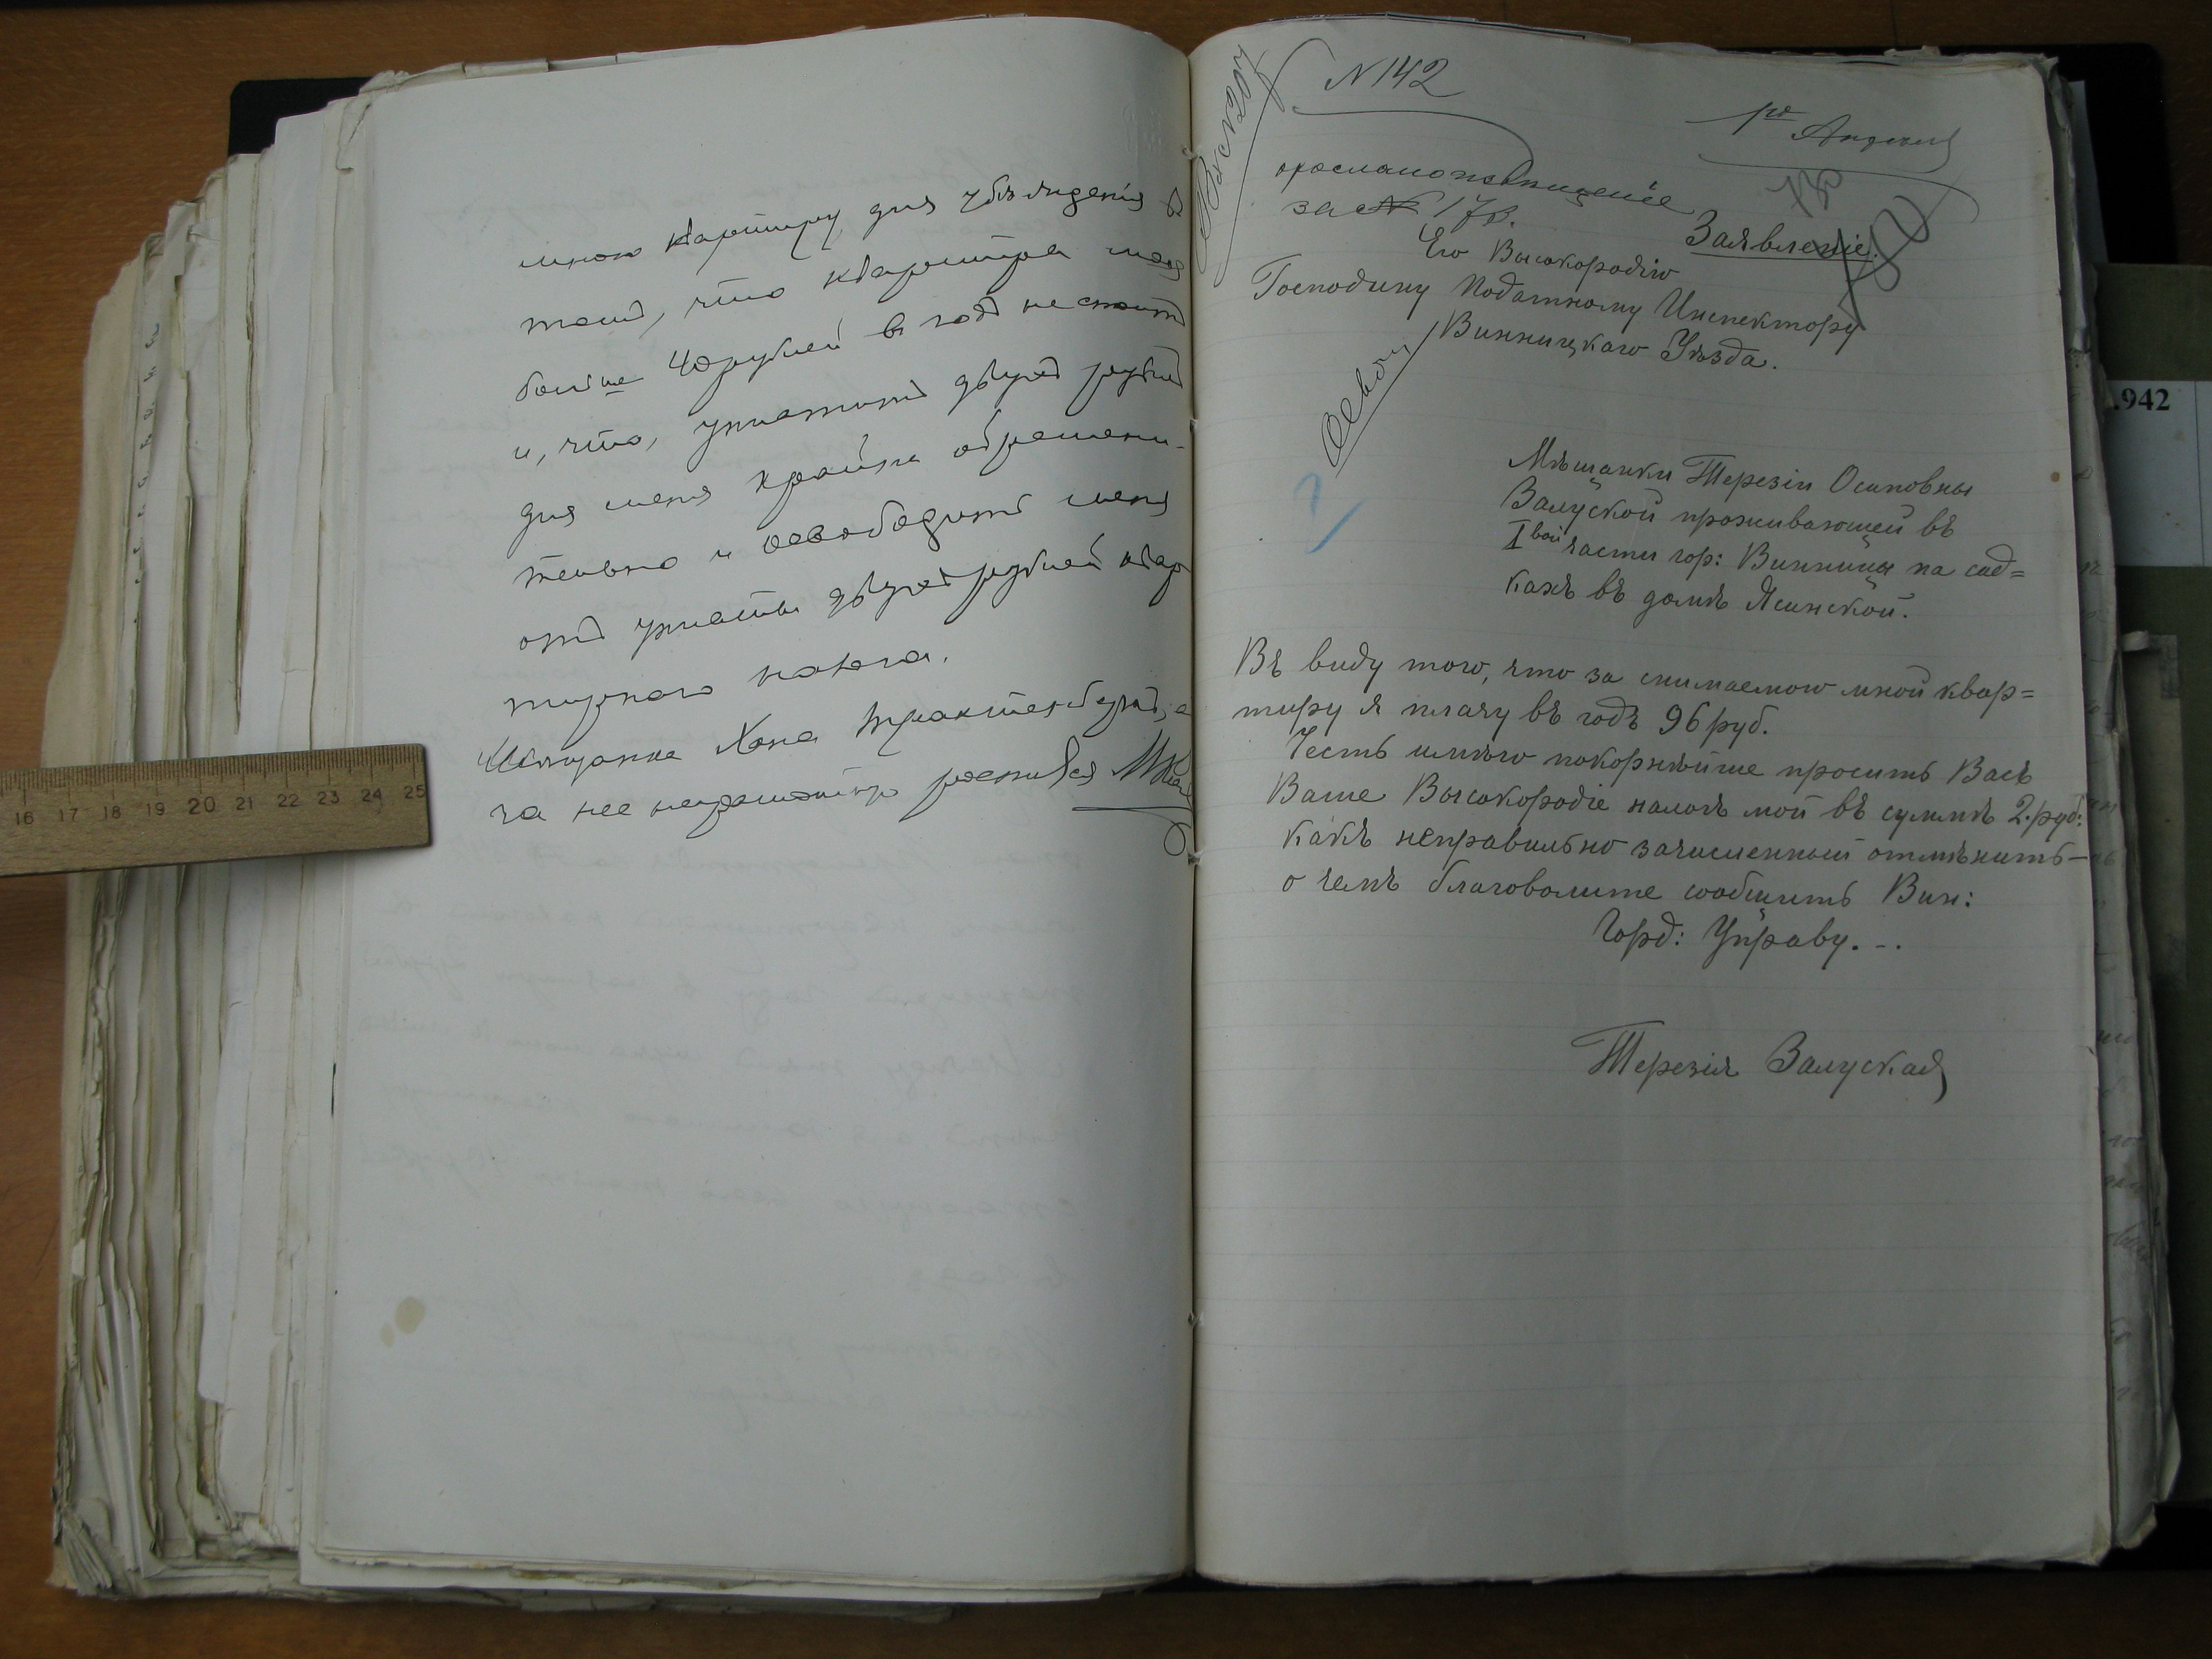 мною квартиру для убѣжденія в
томъ, что квартира моя
больше 40 рублей в годъ не стоитъ
и, что, уплатить двухъ рублей
для меня крайне обремени-
тельно и освободить меня
отъ уплаты двухъ рублей квар
тирнаго налога.
Мѣщанка Хона Трахтенбергъ, а
за нее неграмотную росписался
N 142
1го Апреля
послано извѣщеніе
за № 178.
Заявленіе.
Его Высокородію
Господину Податному Инспектору
Винницкаго Уѣзда.
Мѣщанки Терезіи Осиповны
Залуской проживающей въ
Iвой части гор: Винницы на сад=
кахъ въ домѣ Ясинской.
Въ виду того, что за снимаемою мной квар=
тиру я плачу въ годъ 96 руб.
Честь имѣю покорнѣйше просить Васъ
Ваше Высокородіе налогъ мой въ суммѣ 2. руб:
какъ неправильно зачисленный отмѣнить—
о чемъ благоволите сообщить Вин:
Горд: Управу. ..
Терезія Залуская
.942
16 17 18 19 20 21 22 23 24 25